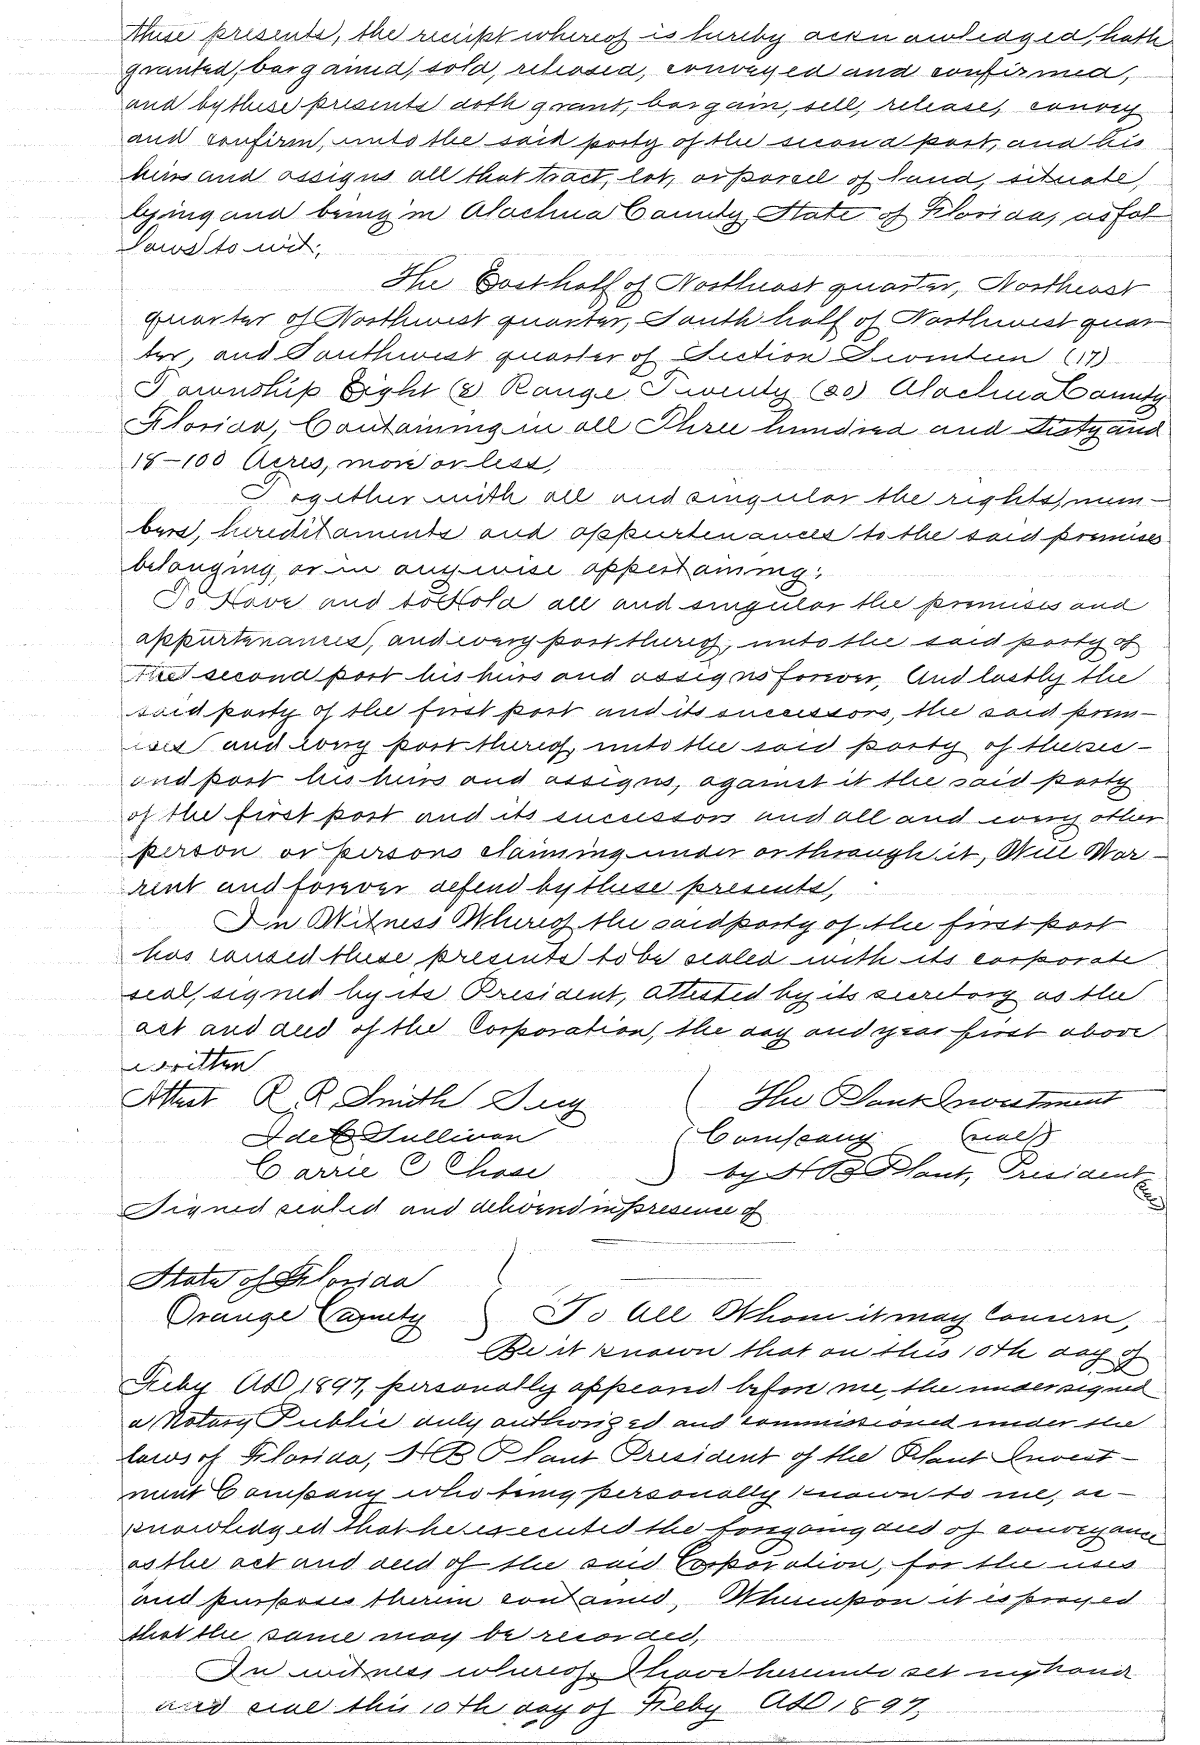 these presents, the receipt whereof is hereby acknowledged, hath
granted, bargained, sold, released, conveyed and confirmed,
and by these presents doth grant, bargain, sell, release, convey
and confirm, unto the said party of the second part, and his
heirs and assigns all that tract, lot, or parcel of land, situate,
lying and being in Alachua County, State of Florida, as fol
lows to wit;
The East half of Northeast quarter, Northeast
quarter of Northwest quarter, South half of Northwest quar-
ter, and Southwest quarter of Section Seventeen (17)
Township Eight (8) Range Twenty (20) Alachua County
Florida, Containing in all Three hundred and sixty and
18-100 Acres, more or less,
Together with all and singular the rights, mem-
bers, hereditaments and appurtenances to the said premises
belonging, or in anywise appertaining;
To Have and to Hold all and singular the premises and
appurtenances, and every part thereof, unto the said party of
the second part his heirs and assigns forever, And lastly the
said party of the first part and its successors, the said prem-
ises and every part thereof, unto the said party of the sec-
ond part his heirs and assigns, against it the said party
of the first part and its successors and all and every other
person or persons claiming under or through it, Will War-
rent and forever defend by these presents,
In Witness Whereof the said party of the first part
has caused these presents to be sealed with its corporate
seal, signed by its President, attested by its secretary as the
act and deed of the Corporation, the day and year first above
written
Attest R. R. Smith Secy ( The Plant Investment
Ide C Sullivan ( Company (seal)
Carrie C Chase ) by H B Plant, President
(seal)
Signed sealed and delivered in presence of
State of Florida
Orange County } To All Whom it may Concern,
Be it known that on this 10th day of
Feby AD 1897, personally appeared before me, the undersigned
a Notary Public duly authorized and commissioned under the
laws of Florida, H B Plant President of the Plant Invest-
ment Company who being personally known to me, ac-
knowledged that he executed the foregoing deed of conveyance
as the act and deed of the said Corporation, for the uses
and purposes therein contained, Whereupon it is prayed
that the same may be recorded,
In witness whereof I have hereunto set my hand
and seal this 10th day of Feby AD 1897,